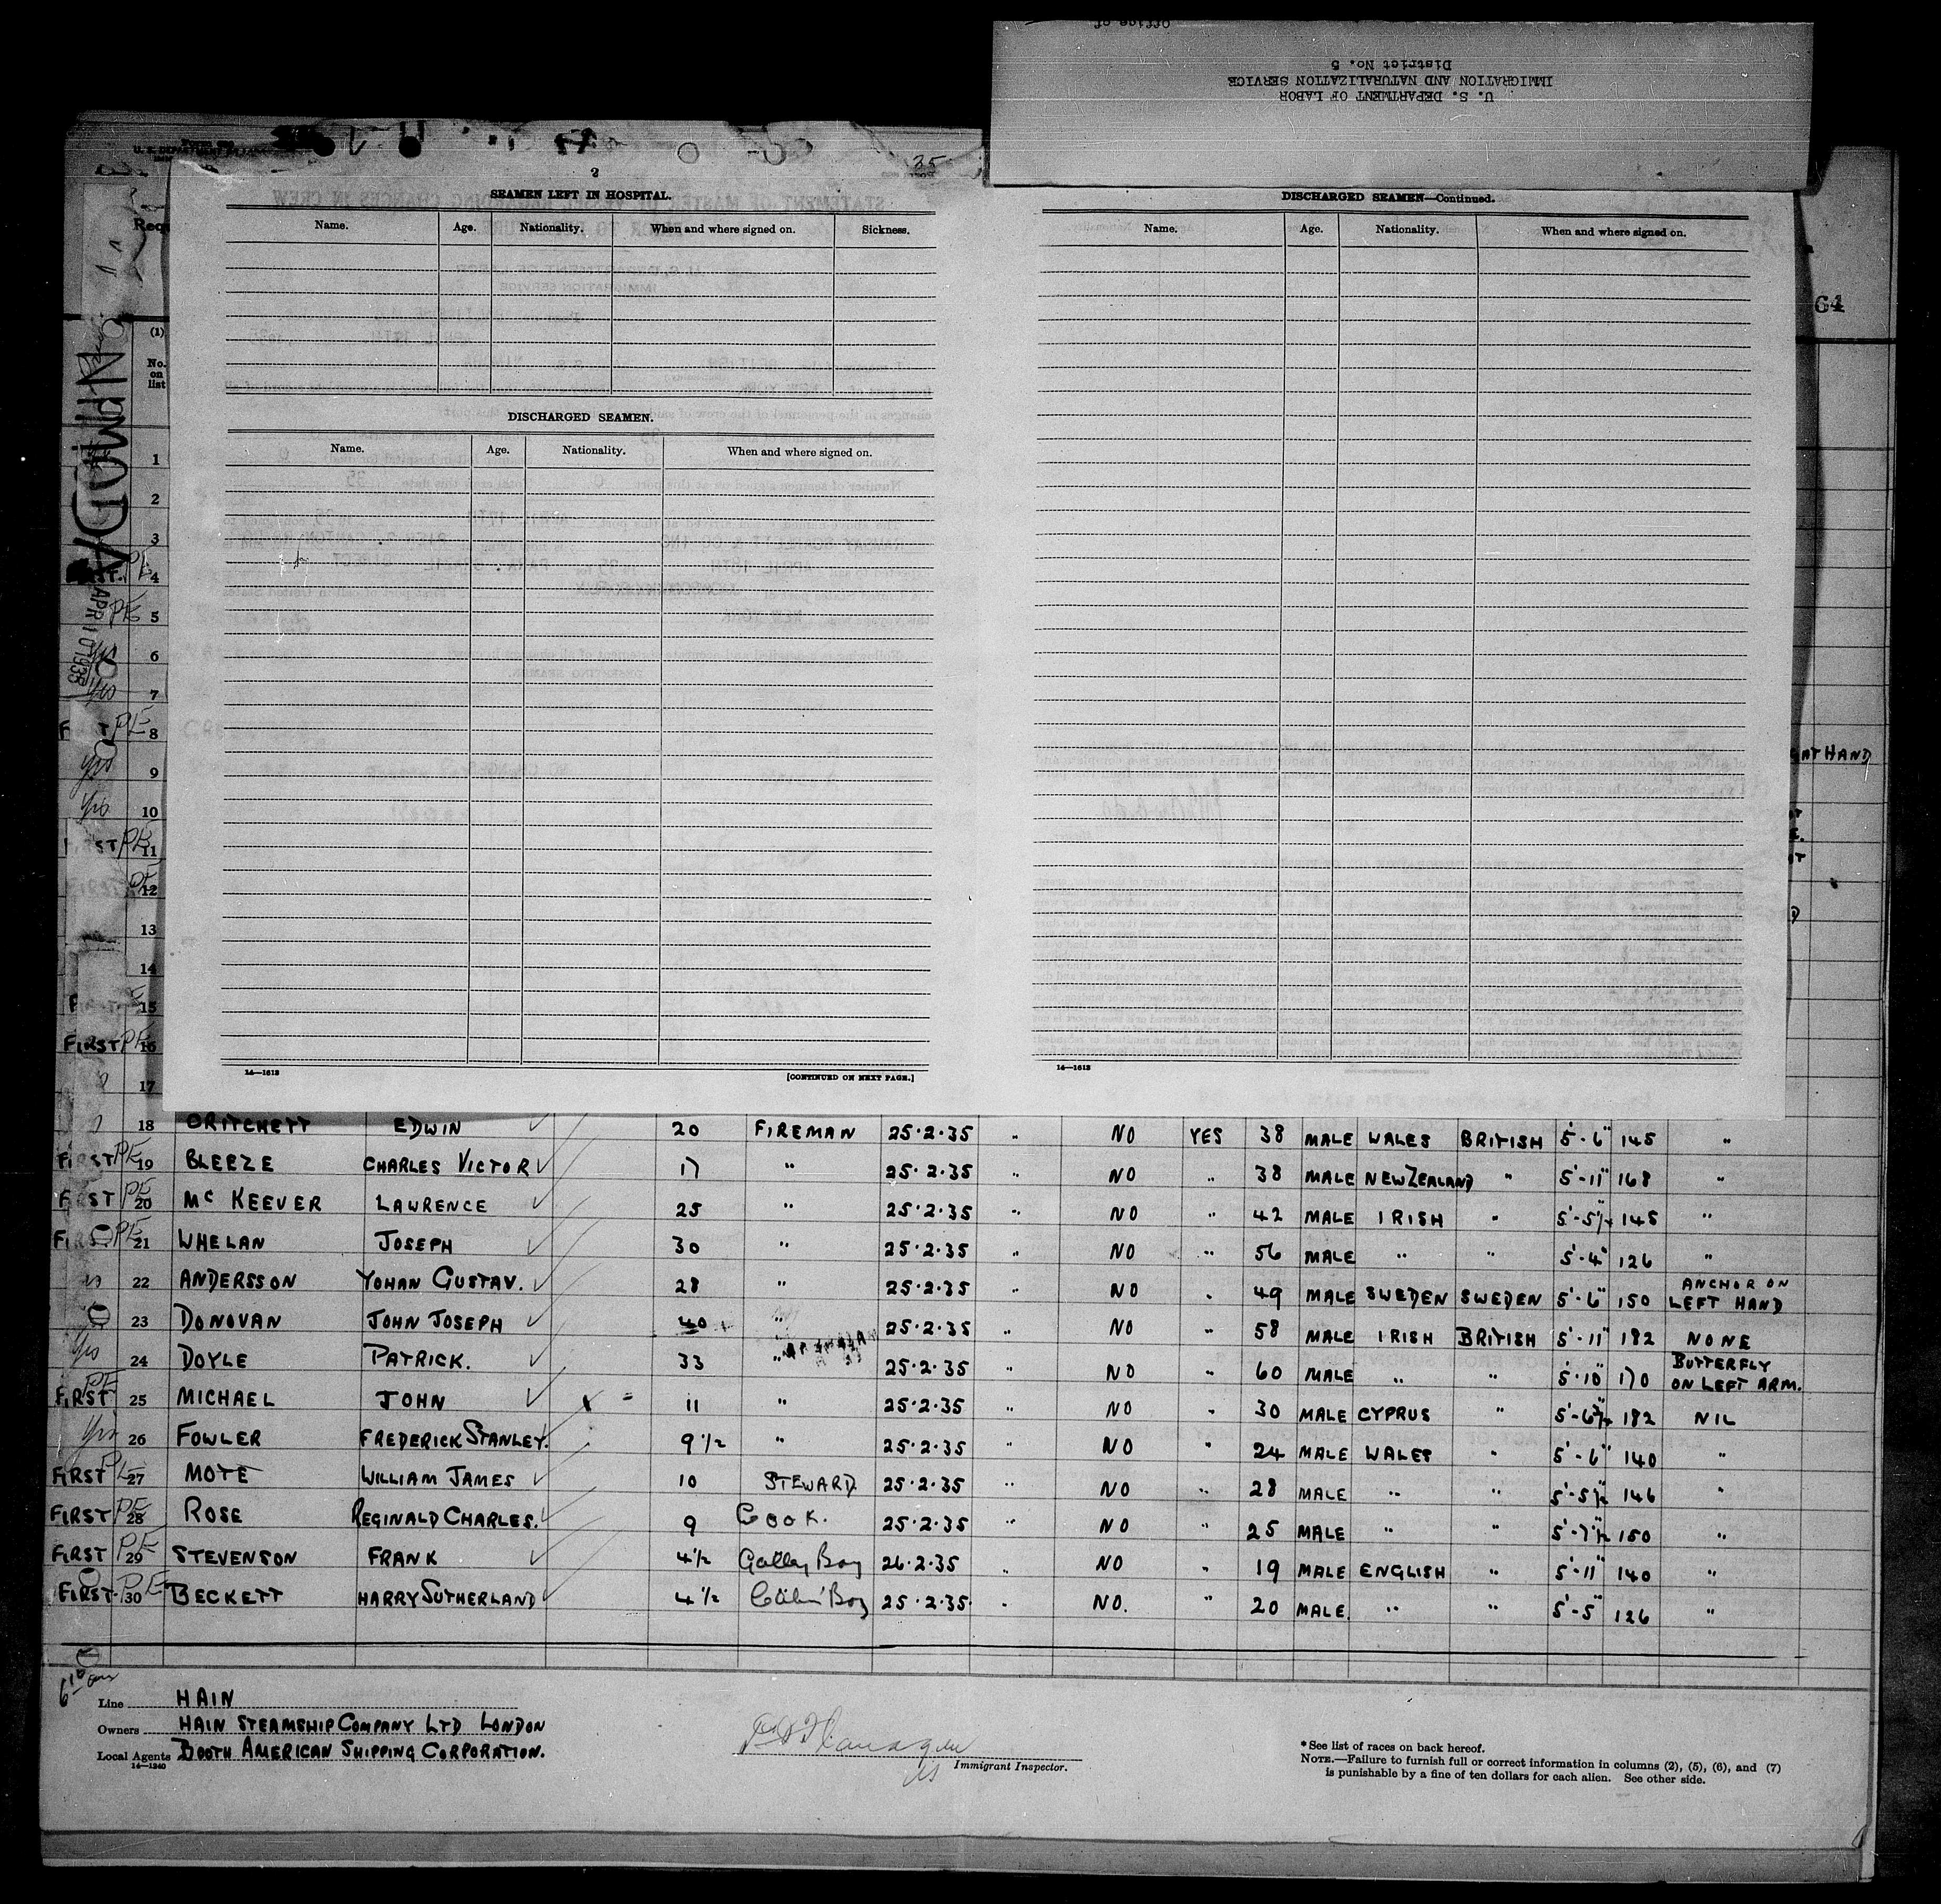 Office of
U. S. DEPARTMENT OF LABOR
IMIGRATION AND NATURALIZATION SERVICE
District No. 5
35
2
SEAMEN LEFT IN HOSPITAL.
Name. Age. Nationality. When and where signed on. Sickness.
DISCHARGED SEAMEN.
Name. Age. Nationality. When and where signed on.
14—1613 [CONTINUED ON NEXT PAGE.]
DISCHARGED SEAMEN—Continued.
Name. Age. Nationality. When and where signed on.
14—1613
64
(1)
No. on list
1
2
3
4
PE 5
6
Yes 7
PE 8
Yes 9
HAND
Yes 10
PE 11
PE 12
13
14
15
FIRST PE 16
17
18 PRITCHETT EDWIN ✓ 20 FIREMAN 25·2·35 " NO YES 38 MALE WALES BRITISH 5'-6" 145 "
FIRST PE 19 BLEEZE CHARLES VICTOR ✓ 17 " 25·2·35 " NO " 38 MALE NEW ZEALAND " 5'-11" 168 "
FIRST PE 20 Mc KEEVER LAWRENCE ✓ 25 " 25·2·35 " NO " 42 MALE IRISH " 5'-5½" 145 "
FIRST PE 21 WHELAN JOSEPH ✓ 30 " 25·2·35 " NO " 56 MALE " " 5'-4" 126 "
22 ANDERSSON YOHAN GUSTAV. ✓ 28 " 25·2·35 " NO " 49 MALE SWEDEN SWEDEN 5'-6" 150 ANCHOR ON LEFT HAND
23 DONOVAN JOHN JOSEPH ✓ 40 " 25·2·35 " NO " 58 MALE IRISH BRITISH 5'-11" 182 NONE
Yes 24 DOYLE PATRICK. ✓ 33 " 25·2·35 " NO " 60 MALE " " 5'-10" 170 BUTTERFLY ON LEFT ARM.
FIRST PE 25 MICHAEL JOHN ✓ x 11 " 25·2·35 " NO " 30 MALE CYPRUS " 182 NIL
Yes 26 FOWLER FREDERICK STANLEY. 9½ " 25·2·35 " NO " 24 MALE WALES " 5'-6" 140 "
FIRST PE 27 MOTE WILLIAM JAMES ✓ 10 STEWARD 25·2·35 " NO " 28 MALE " " 5'-5½ 146 "
FIRST PE 28 ROSE REGINALD CHARLES. ✓ 9 Cook. 25·2·35 " NO " 25 MALE " " 5'-7½" 150 "
FIRST PE 29 STEVENSON FRANK ✓ 4½ Galley Boy 26·2·35 " NO " 19 MALE ENGLISH " 5'-11" 140 "
FIRST PE 30 BECKETT HARRY SUTHERLAND ✓ 4½ Cabin Boy 25·2·35 " NO. " 20 MALE. " " 5'-5" 126 "
NIMODA
APR 10 1935
Line HAIN
Owners HAIN STEAMSHIP COMPANY LTD LONDON
Local Agents BOOTH AMERICAN SHIPPING CORPORATION.
14—1240
Immigrant Inspector.
* See list of races on back hereof.
NOTE.—Failure to furnish full or correct information in columns (2), (5), (6), and (7)
is punishable by a fine of ten dollars for each alien. See other side.